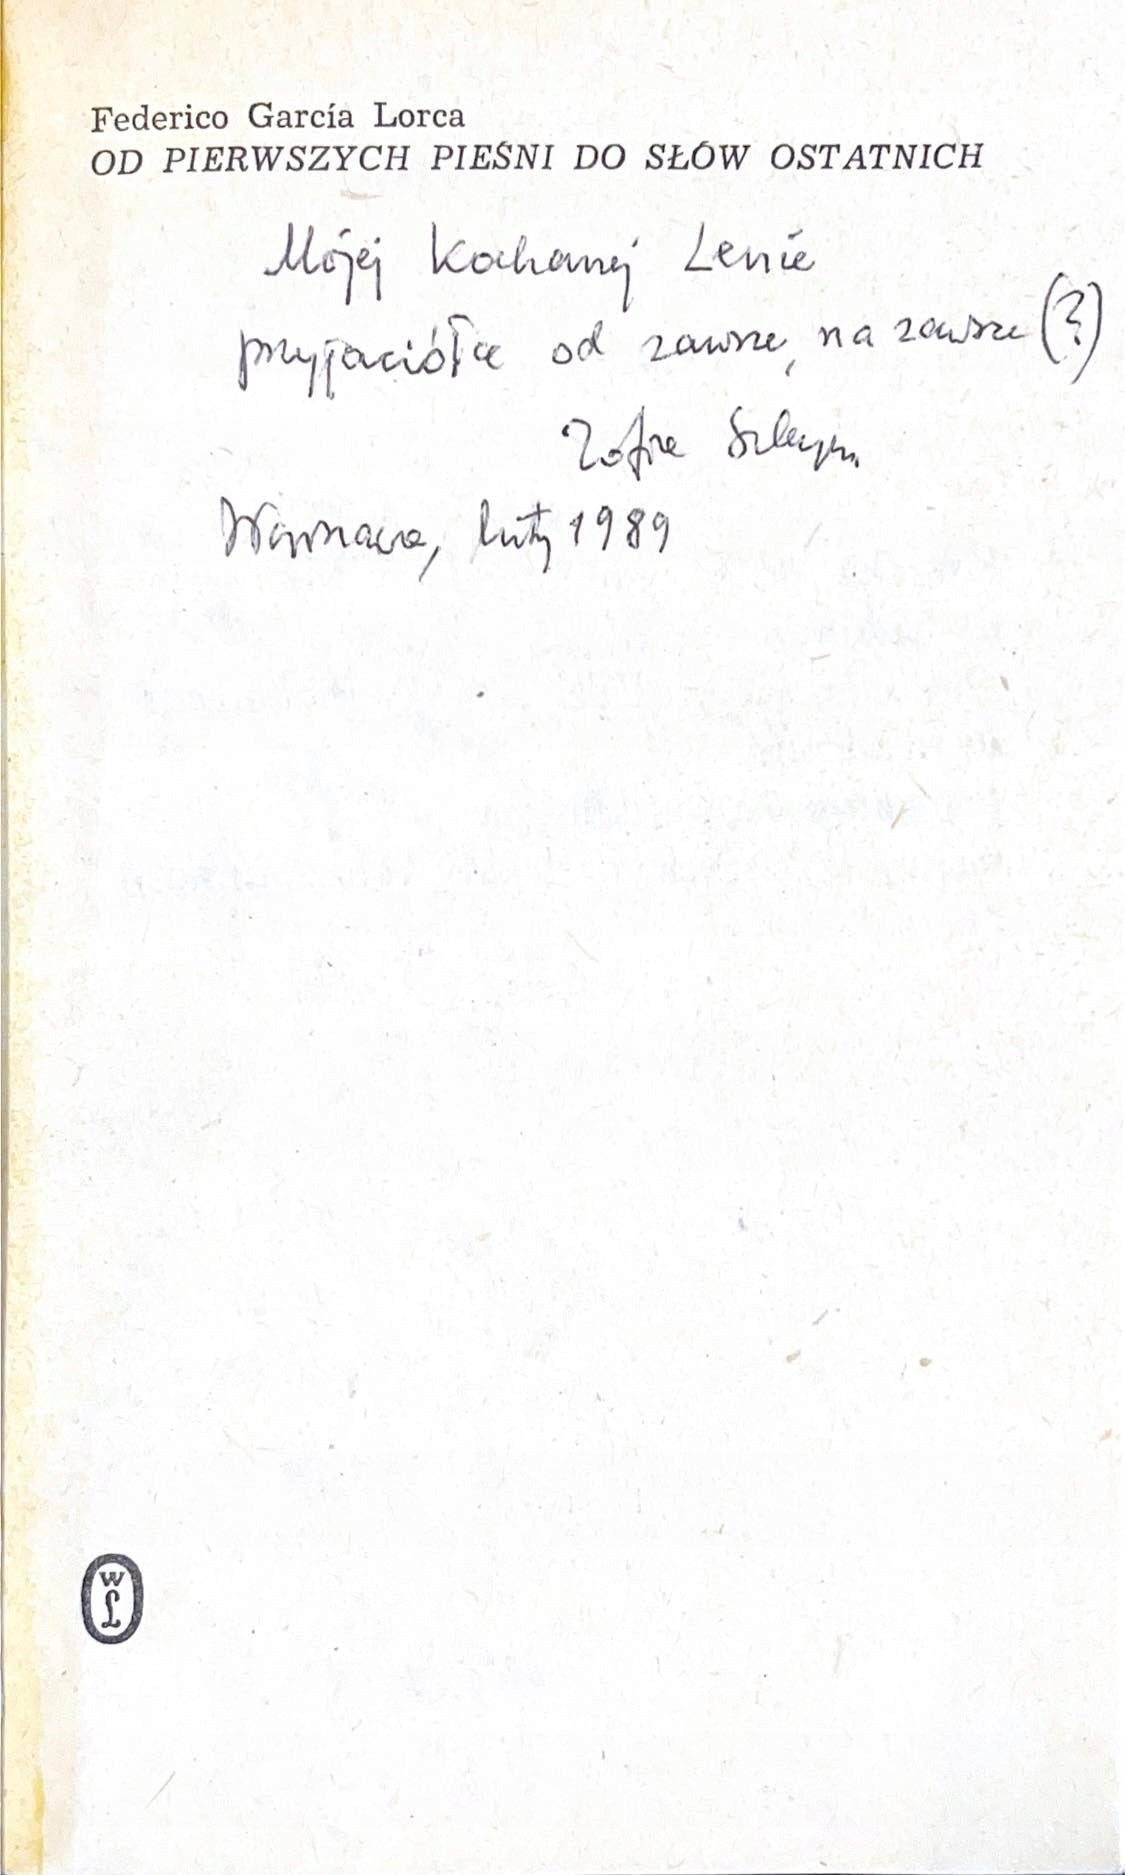 Federico García Lorca
OD PIERWSZYCH PIEŚNI DO SŁÓW OSTATNICH
Mojej Kochanej Lenie
przyjaciółce od zawsze, na zawsze (?)
Zofia Szleyen
Warszawa, luty 1989
WL